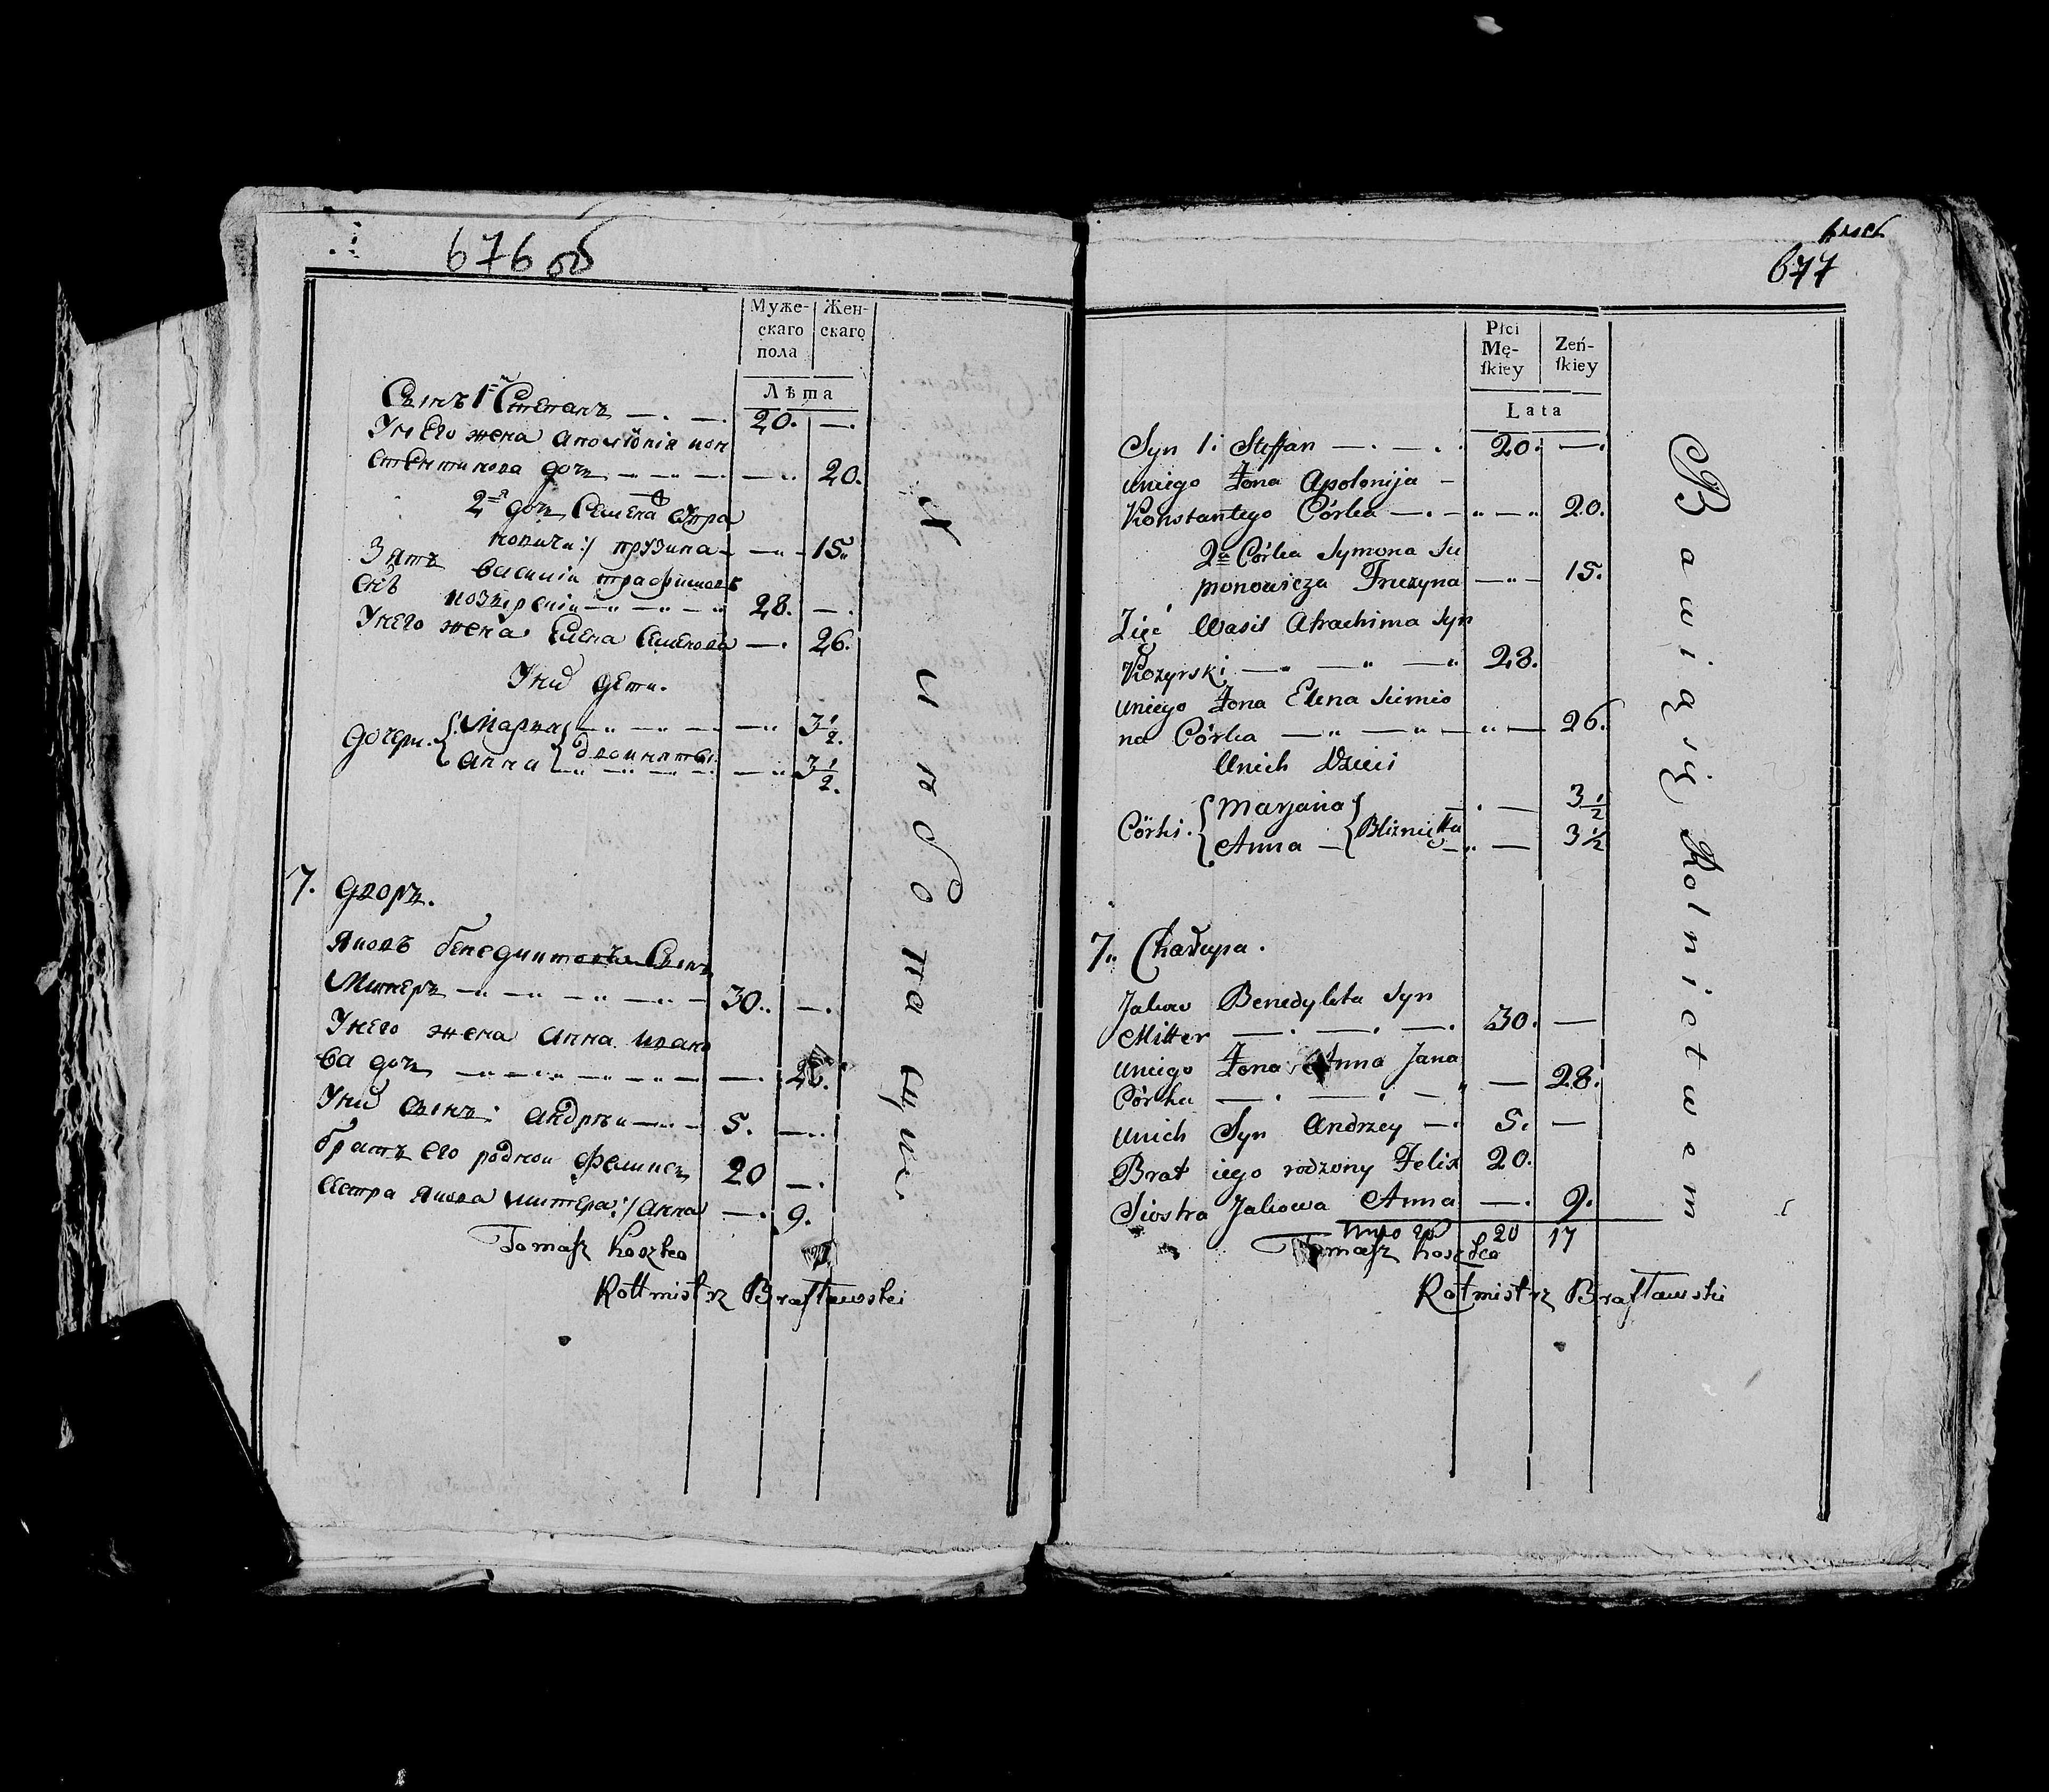 676 об
Муже-
скаго
пола
Жен-
скаго
Лѣта
Сынъ 1й Степанъ — . — . 20. — .
У него жена аполіонія кон
стентинова дочь — " — " — " 20.
2я дочь Семена
трузина — — " — 15.
Зять василіи
снъ козырскіи — " — " — " 28. — .
У него жена Елена Семенова — . 26.
У ниⷯ дети.
дочери: { Марья } — " — " — " 3 1/2.
анна } двоинята — " — " 3 1/2.
7. дворъ.
Яковъ бенедиктовъ Сынъ
Митеръ — " — " — " — " 30. — .
У него жена анна ивано
ва дочь — " — " — " — " — .
У ниⷯ сынъ: андрѣи — " — 5. — .
братъ его роднои феликсъ 20 — .
сестра якова митера :/ анна — . 9.
Tomasz Koszko
Rottmistrz Brasławski
677
Płci
Mę-
skiey
Zeń-
skiey
Lata
Syn 1: Steffan — . — . 20. — .
uniego Żona Apolonija —
Konstantego Córka — . — " — " 20.
2a Córka Symona Su
monowicza Fruzyna — " — 15.
Zięć Wasil Syn
Kozyrski — " — " — " 28.
uniego Żona Elena Siemio
na Córka — " — " — " — 26.
Unich Dzieci
Córki: { Marjana } — . — 3 1/2
Anna — } Bliznięta — " — 3 1/2
7. Chałupa.
Jakow Benedykta Syn
Mitter — . — . — . 30. —
uniego Żona Anna Jana
Córka — . — . — " — 28.
unich Syn Andrzey — . 5. —
Brat iego rodzony Felix 20.
Siostra Jakowa Anna — . 9.
20 17
Tomasz Koszko
Rotmistrz Brasławski
Bawiąsię Rolnictwem